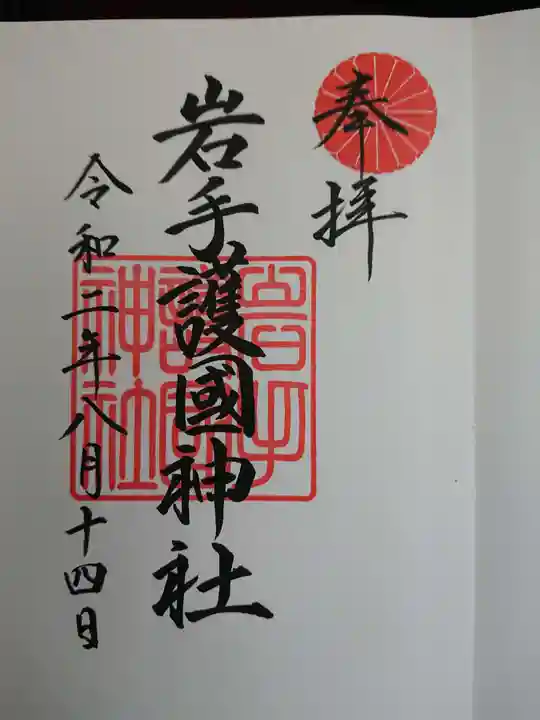 奉拝
岩手護國神社
岩手
護國
神社
令和二年八月十四日